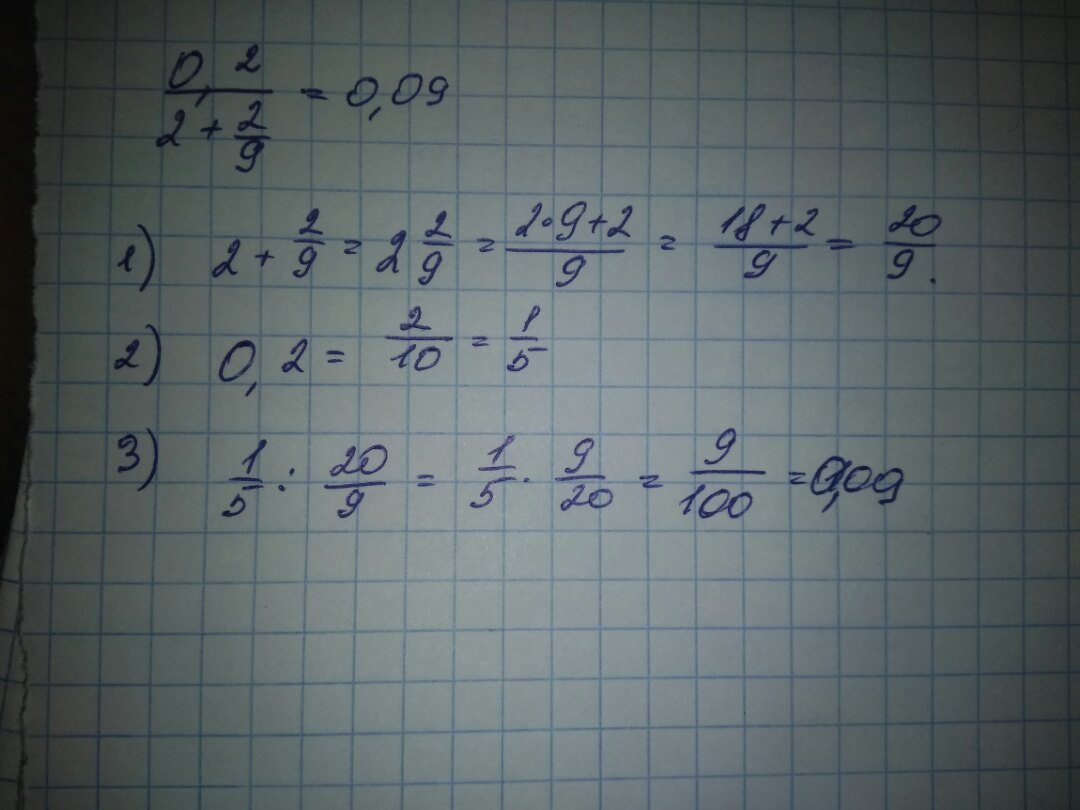 0,2/(2 + 2/9) = 0,09
1) 2 + 2/9 = 2 2/9 = (2·9+2)/9 = (18+2)/9 = 20/9.
2) 0,2 = 2/10 = 1/5
3) 1/5 : 20/9 = 1/5 · 9/20 = 9/100 = 0,09